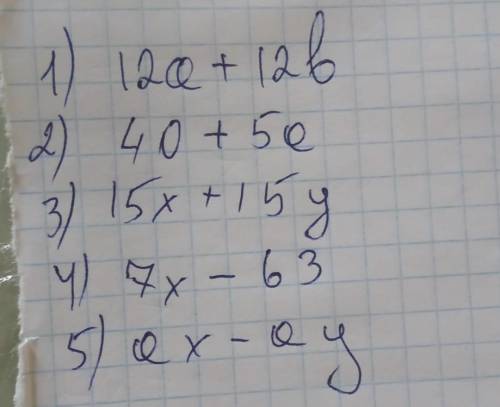 1) 12a + 12b
2) 40 + 5a
3) 15x + 15y
4) 7x - 63
5) ax - ay